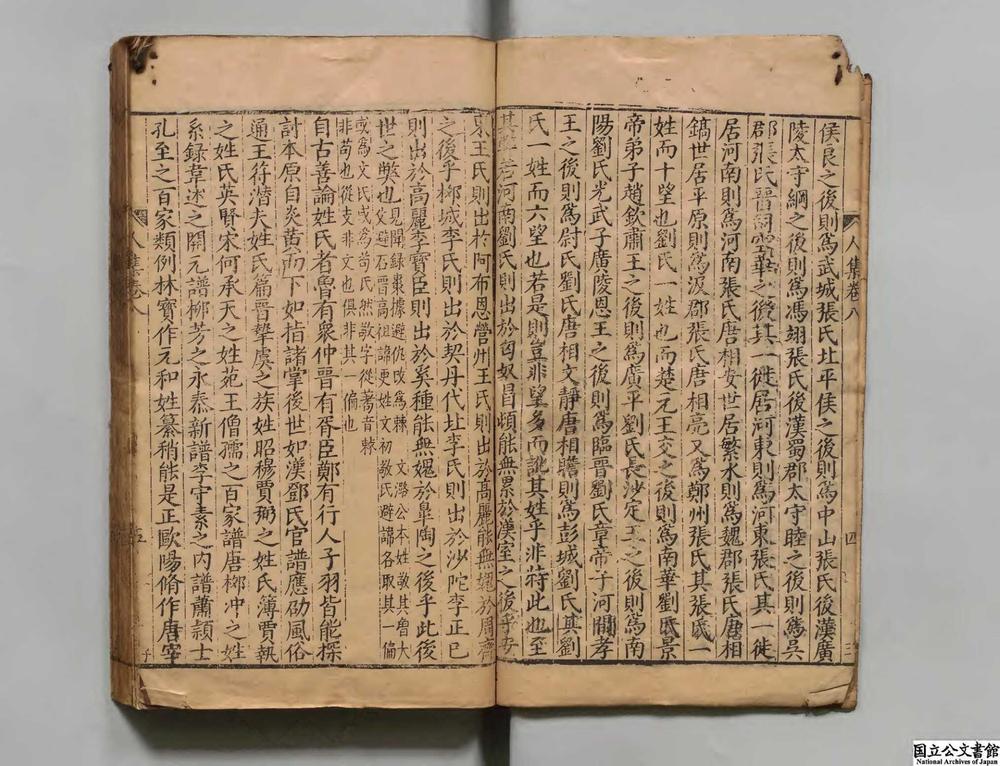 侯良之後則爲武城張氏北平侯之後則爲中山張氏後漢廣
陵太守綱之後則爲馮翊張氏後漢蜀郡太守睦之後則爲吳
郡張氏晉司空華之後其一徙居河東則爲河東張氏其一徙
居河南則爲河南張氏唐相安世居繁水則爲魏郡張氏唐相
鎬世居平原則爲汲郡張氏唐相亮又爲鄭州張氏其張氏一
姓而十望也劉氏一姓也而楚元王交之後則爲南華劉氏景
帝弟子趙欽肅王之後則爲廣平劉氏長沙定王之後則爲南
陽劉氏光武子廣陵恩王之後則爲臨晉劉氏章帝子河間孝
王之後則爲尉氏劉氏唐相文靜唐相瞻則爲彭城劉氏其劉
氏一姓而六望也若是則豈非望多而訛其姓乎非特此也至
其 若河南劉氏則出於匈奴冒頓能無累於漢室之後乎安
東王氏則出於阿布恩營州王氏則出於高麗能無媿於周
之後乎柳城李氏則出於契丹代北李氏則出於沙陀李正已
則出於高麗李寶臣則出於奚種能無媿於皐陶之後乎此後
世之弊也見聞錄棗據避仇改爲棘 文潞公本姓敬其曾大
父避石晉高祖諱更姓文初敬氏避諱各取其一偏
或爲文氏或爲苟氏然敬字從茍音棘
非苟也從攴非文也俱非其一偏也
自古善論姓氏者魯有衆仲晉有胥臣鄭有行人子羽皆能探
討本原自炎黃而下如指諸掌後世如漢鄧氏官譜應劭風俗
通王符潛夫姓氏篇晉摯虞之族姓昭穆賈弼之姓氏簿賈執
之姓氏英賢宋何承天之姓苑王僧孺之百家譜唐柳冲之姓
系錄韋述之開元譜柳芳之永泰新譜李守素之內譜蕭頴士
孔至之百家類例林寶作元和姓纂稍能是正歐陽脩作唐宰
人集卷八
四
三
人集卷八
五
国立公文書館
National Archives of Japan